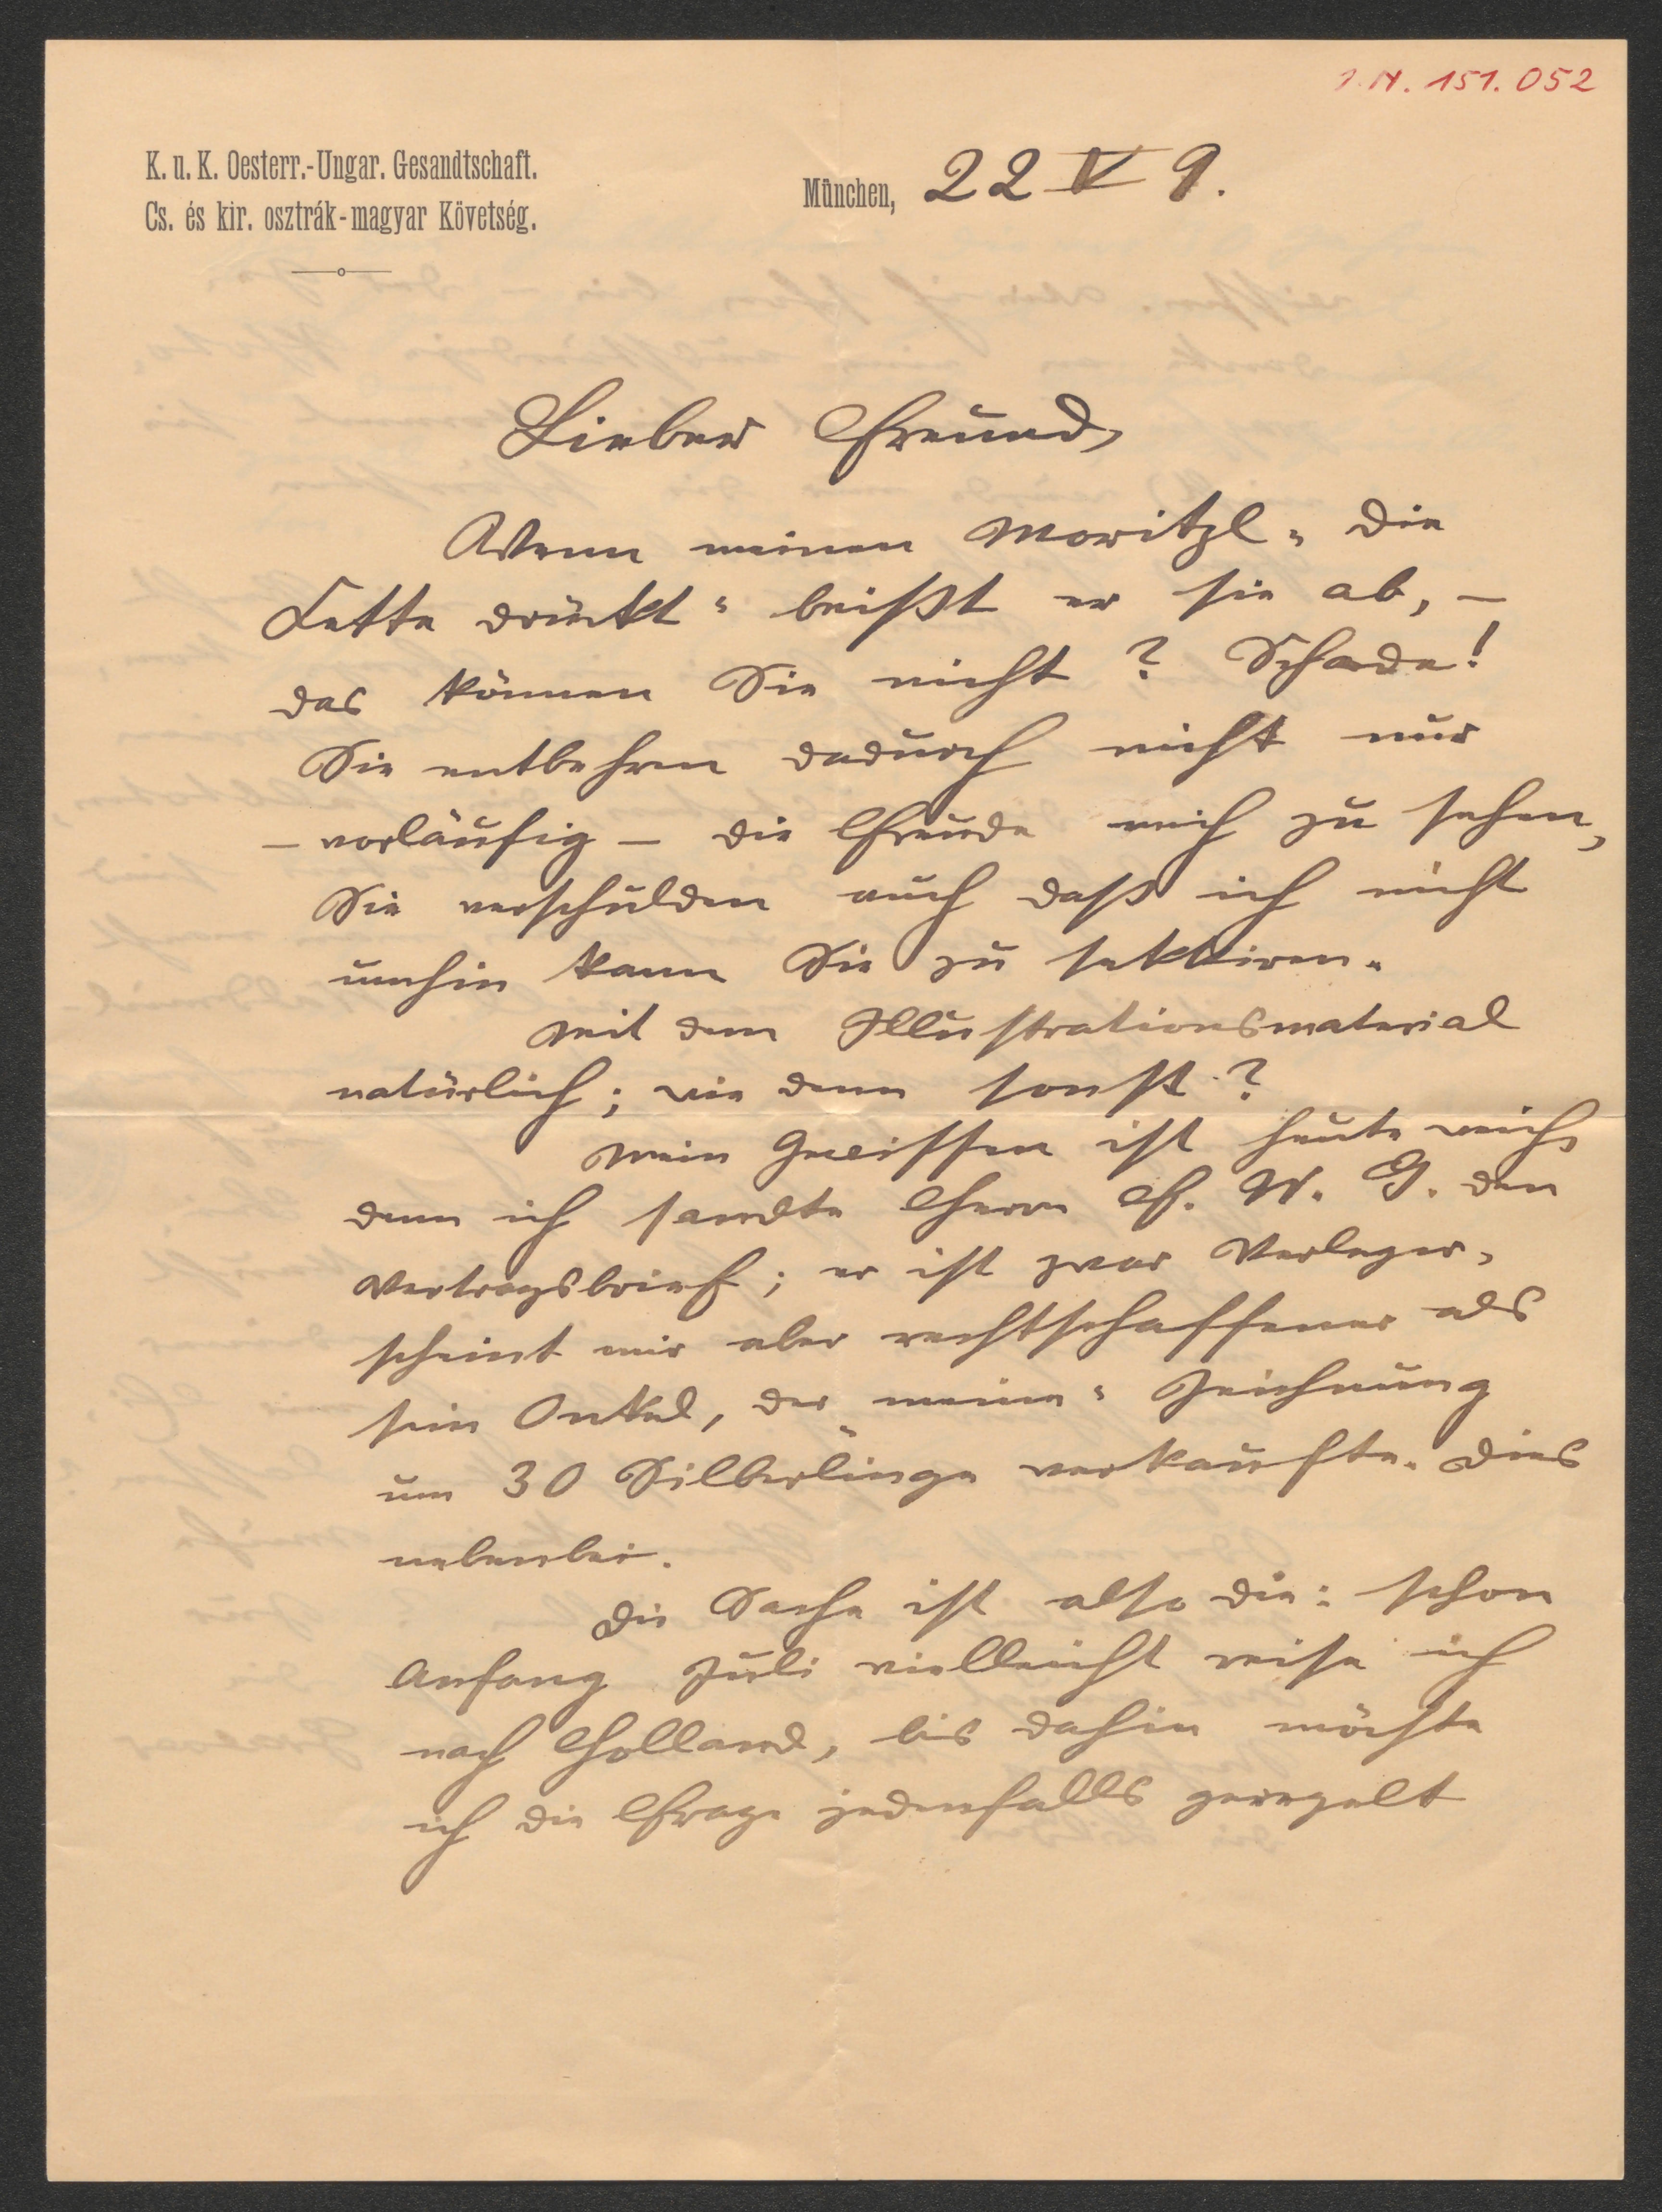 I. N. 151.052
K. u. K. Oesterr.-Ungar. Gesandtschaft.
Cs. és kir. osztrák-magyar Követség.
München, 22 V 9.
Lieber Freund,
Wenn meinen Moritzl „die
Kette drückt“ beißt er sie ab, –
das können Sie nicht? Schade!
Sie entbehren dadurch nicht nur
– vorläufig – die Freude mich zu sehen,
Sie verschulden auch daß ich nicht
umhin kann Sie zu sekkiren.
Mit dem Illustrationsmaterial
natürlich; wie denn sonst?
Mein Gewissen ist heute weich,
denn ich sandte Herrn F. W. G. den
Vertragsbrief; er ist zwar Verleger,
scheint mir aber rechtschaffener als
sein Onkel, der „meine“ Zeichnung
um 30 Silberlinge verkaufte. Dies
nebenbei.
Die Sache ist also die: schon
Anfang Juli vielleicht reise ich
nach Holland, bis dahin möchte
ich die Frage jedenfalls geregelt